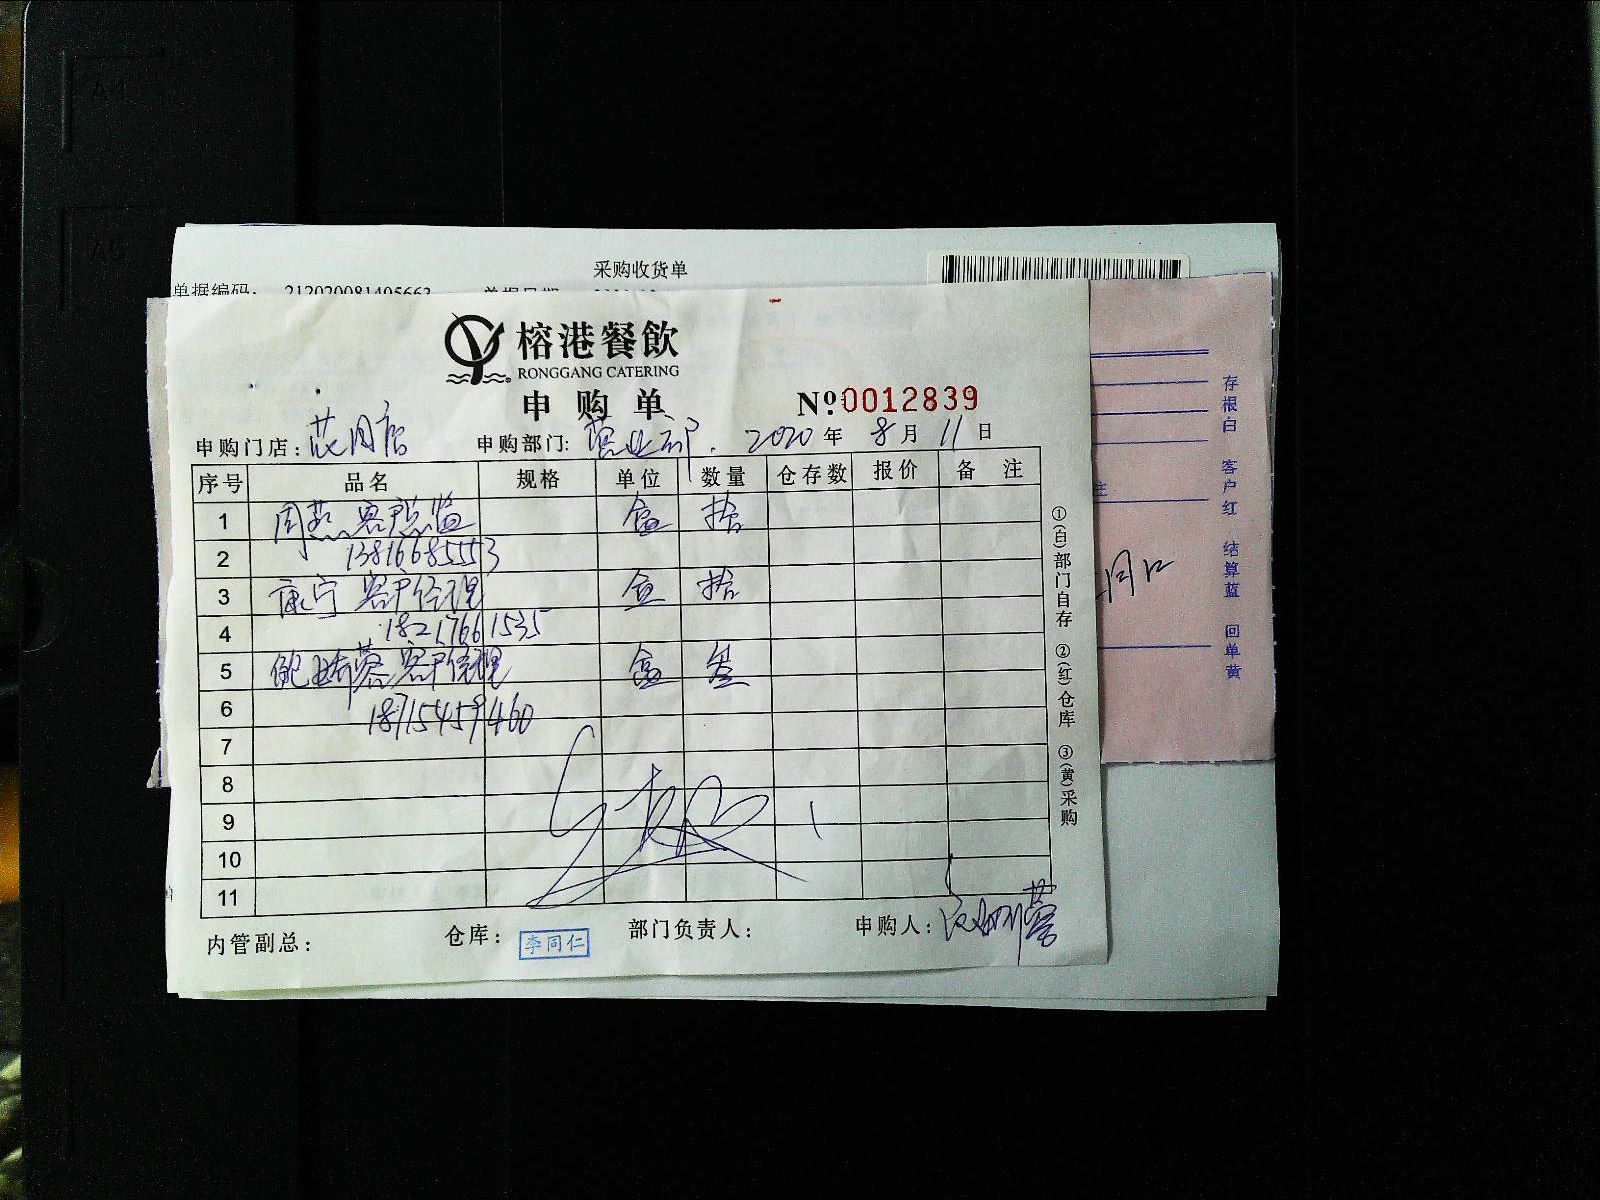 采购收货单
单据编码： 212020081405663 单据日期
榕港餐飲
RONGGANG CATERING
申购单 №0012839
申购门店：茂月店 申购部门：营业部. 2020年8月11日
序号 品名 规格 单位 数量 仓存数 报价 备注
1 周燕 客户总监 盒 拾
2 13816685553
3 康宁 客户经理 盒 拾
4 18217661535
5 鲍 蓉 客户经理 盒 叁
6 18715459460
7
8
9
10
11
内管副总： 仓库：李同仁 部门负责人： 申购人：
①(白)部门自存 ②(红)仓库 ③(黄)采购
存根白 客户红 结算蓝 回单黄